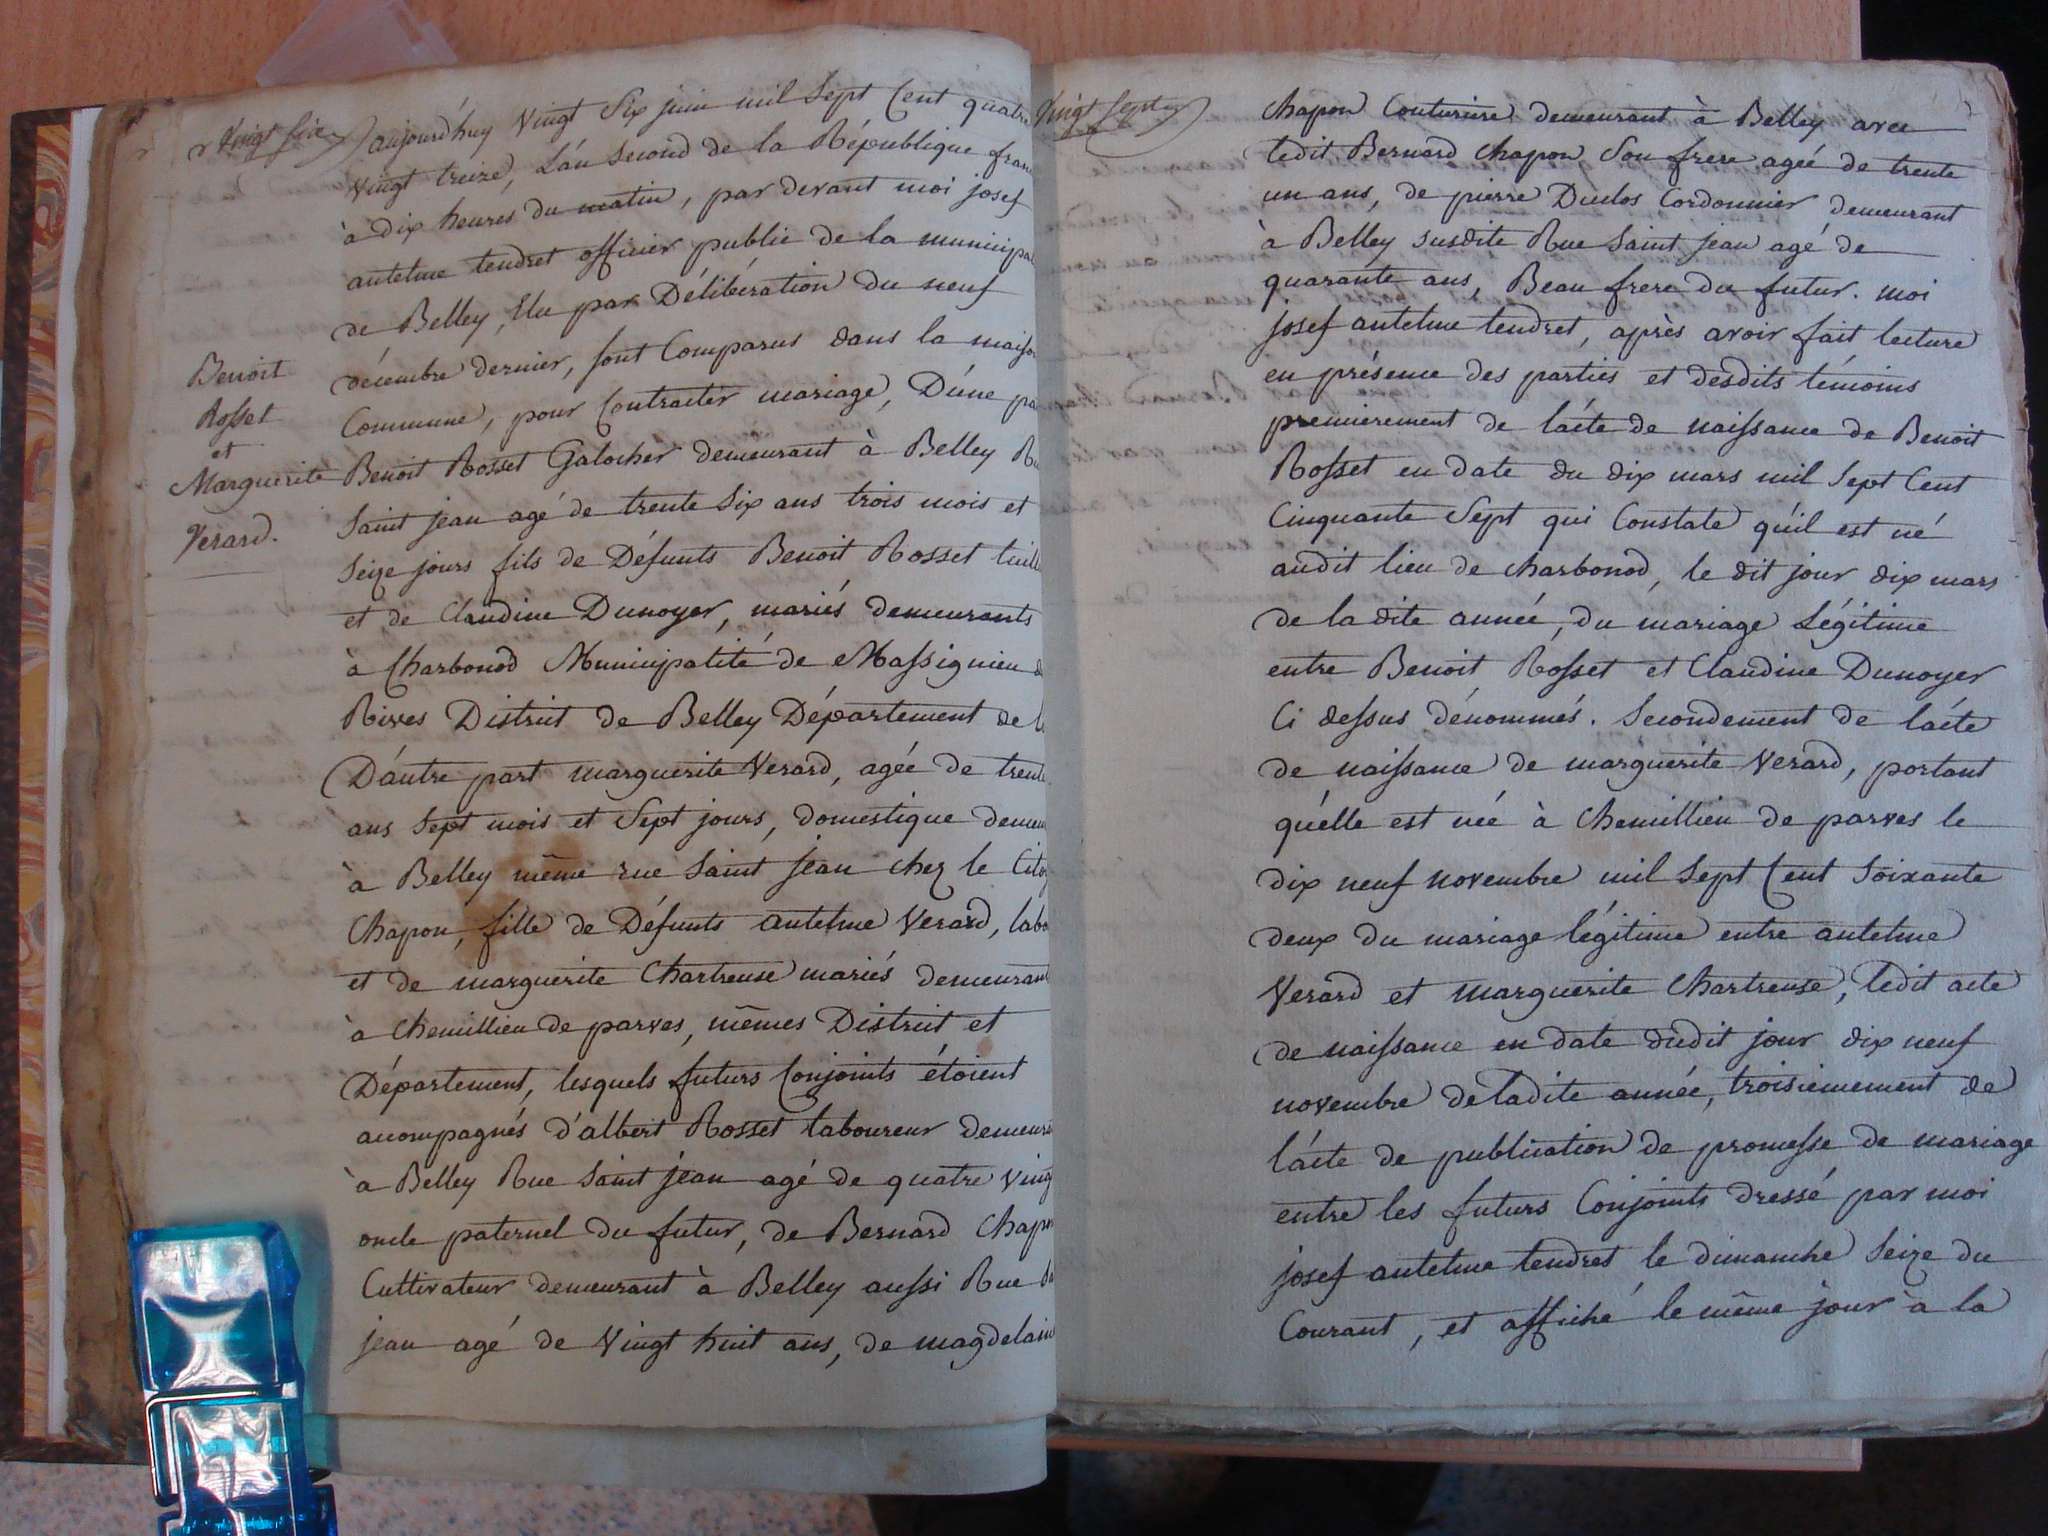 Vingt six
aujourd'huy Vingt Six juin mil Sept Cent quatre
vingt treize, L'an second de la République fran
à dix heures du matin, par devant moi josef
antelme tendret officier public de la municipal
de Belley, Elu par Délibération du neuf
décembre dernier, sont Comparus dans la maison
Commune, pour Contracter mariage, D'une pa
Benoit
Rosset
et
Marguerite
Verard.
Benoit Rosset Galocher demeurant à Belley Ru
Saint jean agé de trente six ans trois mois et
Seize jours fils de Défunts Benoit Rosset tuill
et de Claudine Dunoyer, mariés demeurants
à Charbonod Municipalité de Massignieu d
Rives District de Belley Département de l
D'autre part marguerite Verard, agée de trente
ans Sept mois et Sept jours, domestique demeu
à Belley même rue Saint jean chez le Cito
Chapon, fille de Défunts antelme Verard, labo
et de marguerite Chartreuse mariés demeurant
à Chemillieu de parves, mêmes District et
Département, lesquels futurs Conjoints étoient
acompagnés d'albert Rosset laboureur demeura
à Belley Rue Saint jean agé de quatre ving
oncle paternel du futur, de Bernard Chapon
Cultivateur demeurant à Belley aussi Rue Sa
jean agé de Vingt huit ans, de magdelain
Vingt sept
chapon Couturiere demeurant à Belley avec
ledit Bernard chapon Son frere ageé de trente
un ans, de pierre Duclos Cordonnier demeurant
à Belley susdite Rue Saint jean agé de
quarante ans, Beau frere du futur. moi
josef antelme tendret, après avoir fait lecture
en présence des parties et desdits témoins
premierement de l'acte de naissance de Benoit
Rosset en date du dix mars mil Sept Cent
Cinquante Sept qui Constate qu'il est né
audit lieu de charbonod, le dit jour dix mars
de la dite année, du mariage Légitime
entre Benoit Rosset et Claudine Dunoyer
Ci dessus dénommés. Secondement de l'acte
de naissance de marguerite Verard, portant
qu'elle est née à Chemillieu de parves le
dix neuf novembre mil Sept Cent Soixante
deux du mariage légitime entre antelme
Verard et marguerite Chartreuse, ledit acte
de naissance en date dudit jour dix neuf
novembre de ladite année, troisiemement de
l'acte de publication de promesse de mariage
entre les futurs Conjoints dressé par moi
josef antelme tendret le dimanche Seize du
Courant, et affiché le même jour à la